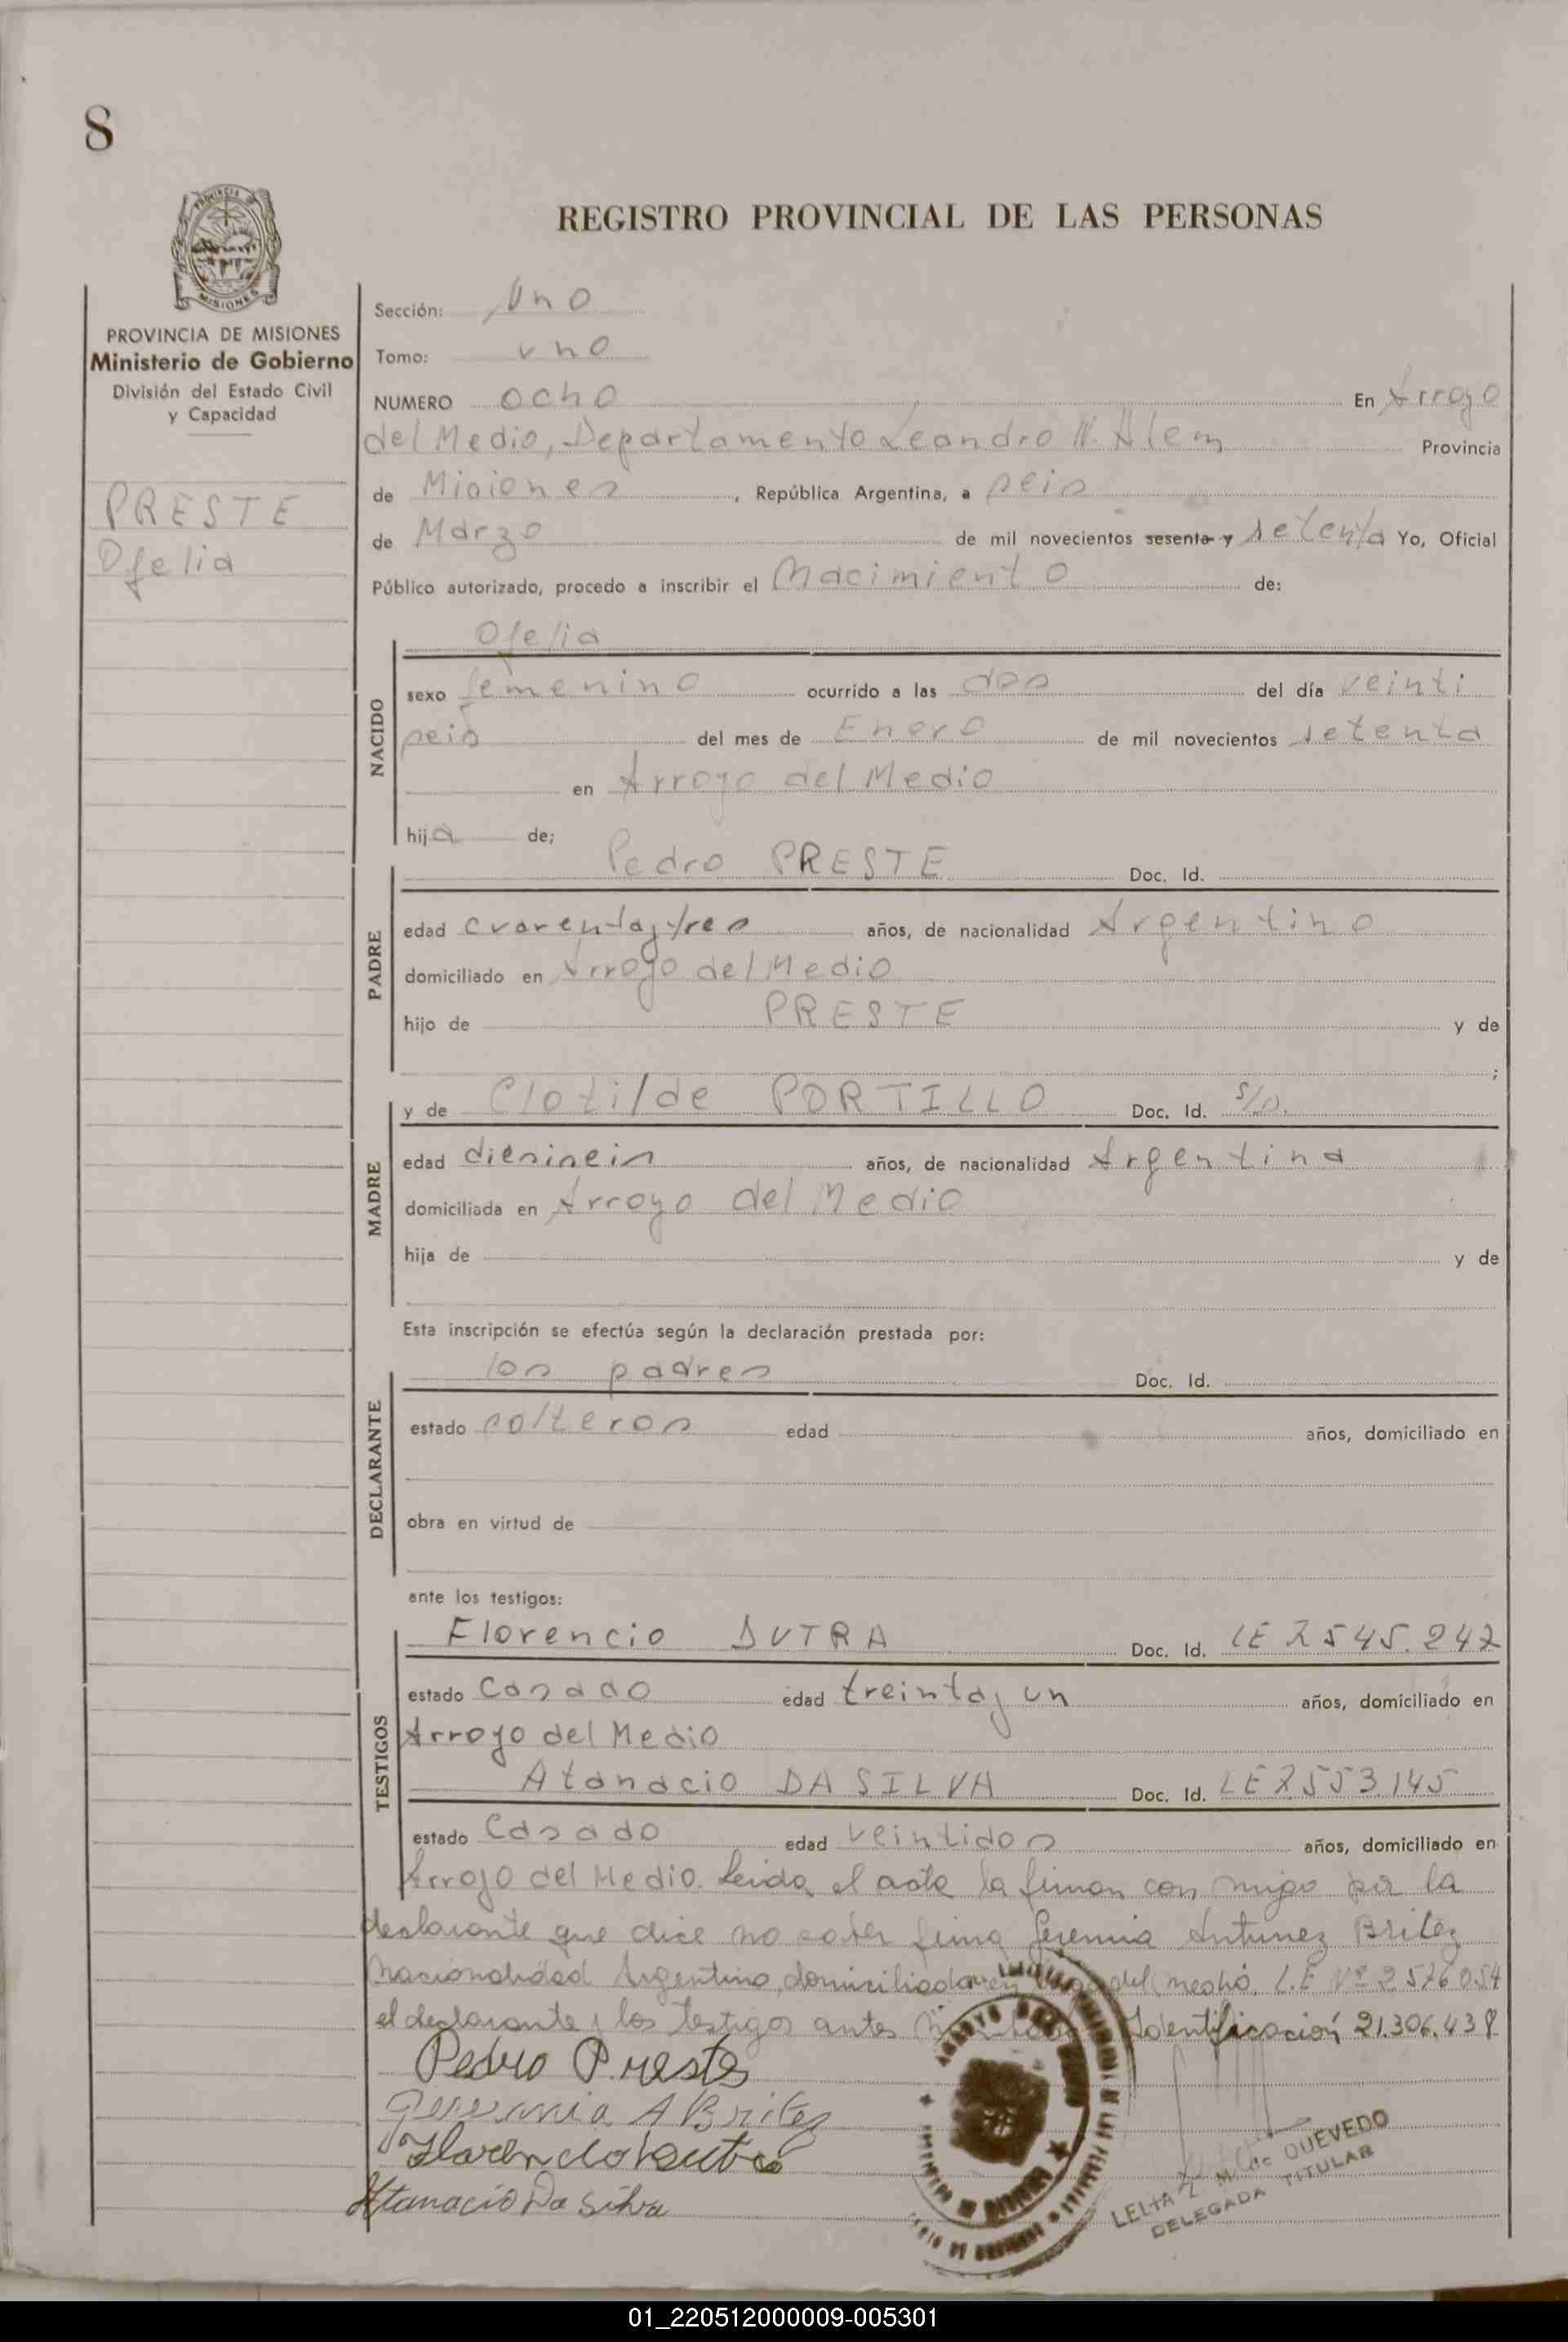 8
REGISTRO PROVINCIAL DE LAS PERSONAS
PROVINCIA DE MISIONES
Ministerio de Gobierno
División del Estado Civil
y Capacidad
PRESTE
Ofelia
Sección: Uno
Tomo: uno
NUMERO ocho En Arroyo
del Medio, Departamento Leandro N. Alem Provincia
de Misiones, República Argentina, a seis
de Marzo de mil novecientos sesenta y setenta Yo, Oficial
Público autorizado, procedo a inscribir el Nacimiento de:
NACIDO
Ofelia
sexo femenino ocurrido a las dos del día veinti
seis del mes de Enero de mil novecientos setenta
en Arroyo del Medio
hija de;
PADRE
Pedro PRESTE Doc. Id.
edad cuarenta y tres años, de nacionalidad Argentino
domiciliado en Arroyo del Medio
hijo de PRESTE y de
;
MADRE
y de Clotilde PORTILLO Doc. Id. S/D.
edad dieciseis años, de nacionalidad Argentina
domiciliada en Arroyo del Medio
hija de y de
Esta inscripción se efectúa según la declaración prestada por:
DECLARANTE
los padres Doc. Id.
estado solteros edad años, domiciliado en
obra en virtud de
ante los testigos:
TESTIGOS
Florencio DUTRA Doc. Id. LE 7545.247
estado Casado edad treinta y un años, domiciliado en
Arroyo del Medio
Atanacio DA SILVA Doc. Id. LE 7553.145
estado Casado edad veintidos años, domiciliado en
Arroyo del Medio. Leida el acta la firman con migo por la
declarante que dice no saber firma Geremia Antunez Britez
nacionalidad Argentina, domiciliada en del medio, L.E Nº 2576054
el declarante y los testigos antes Identificación 21.306.438
Pedro Preste
Geremia A Britez
Florencio Dutra
Atanacio Da Silva
LELIA Z. M. de QUEVEDO
DELEGADA TITULAR
01_220512000009-005301